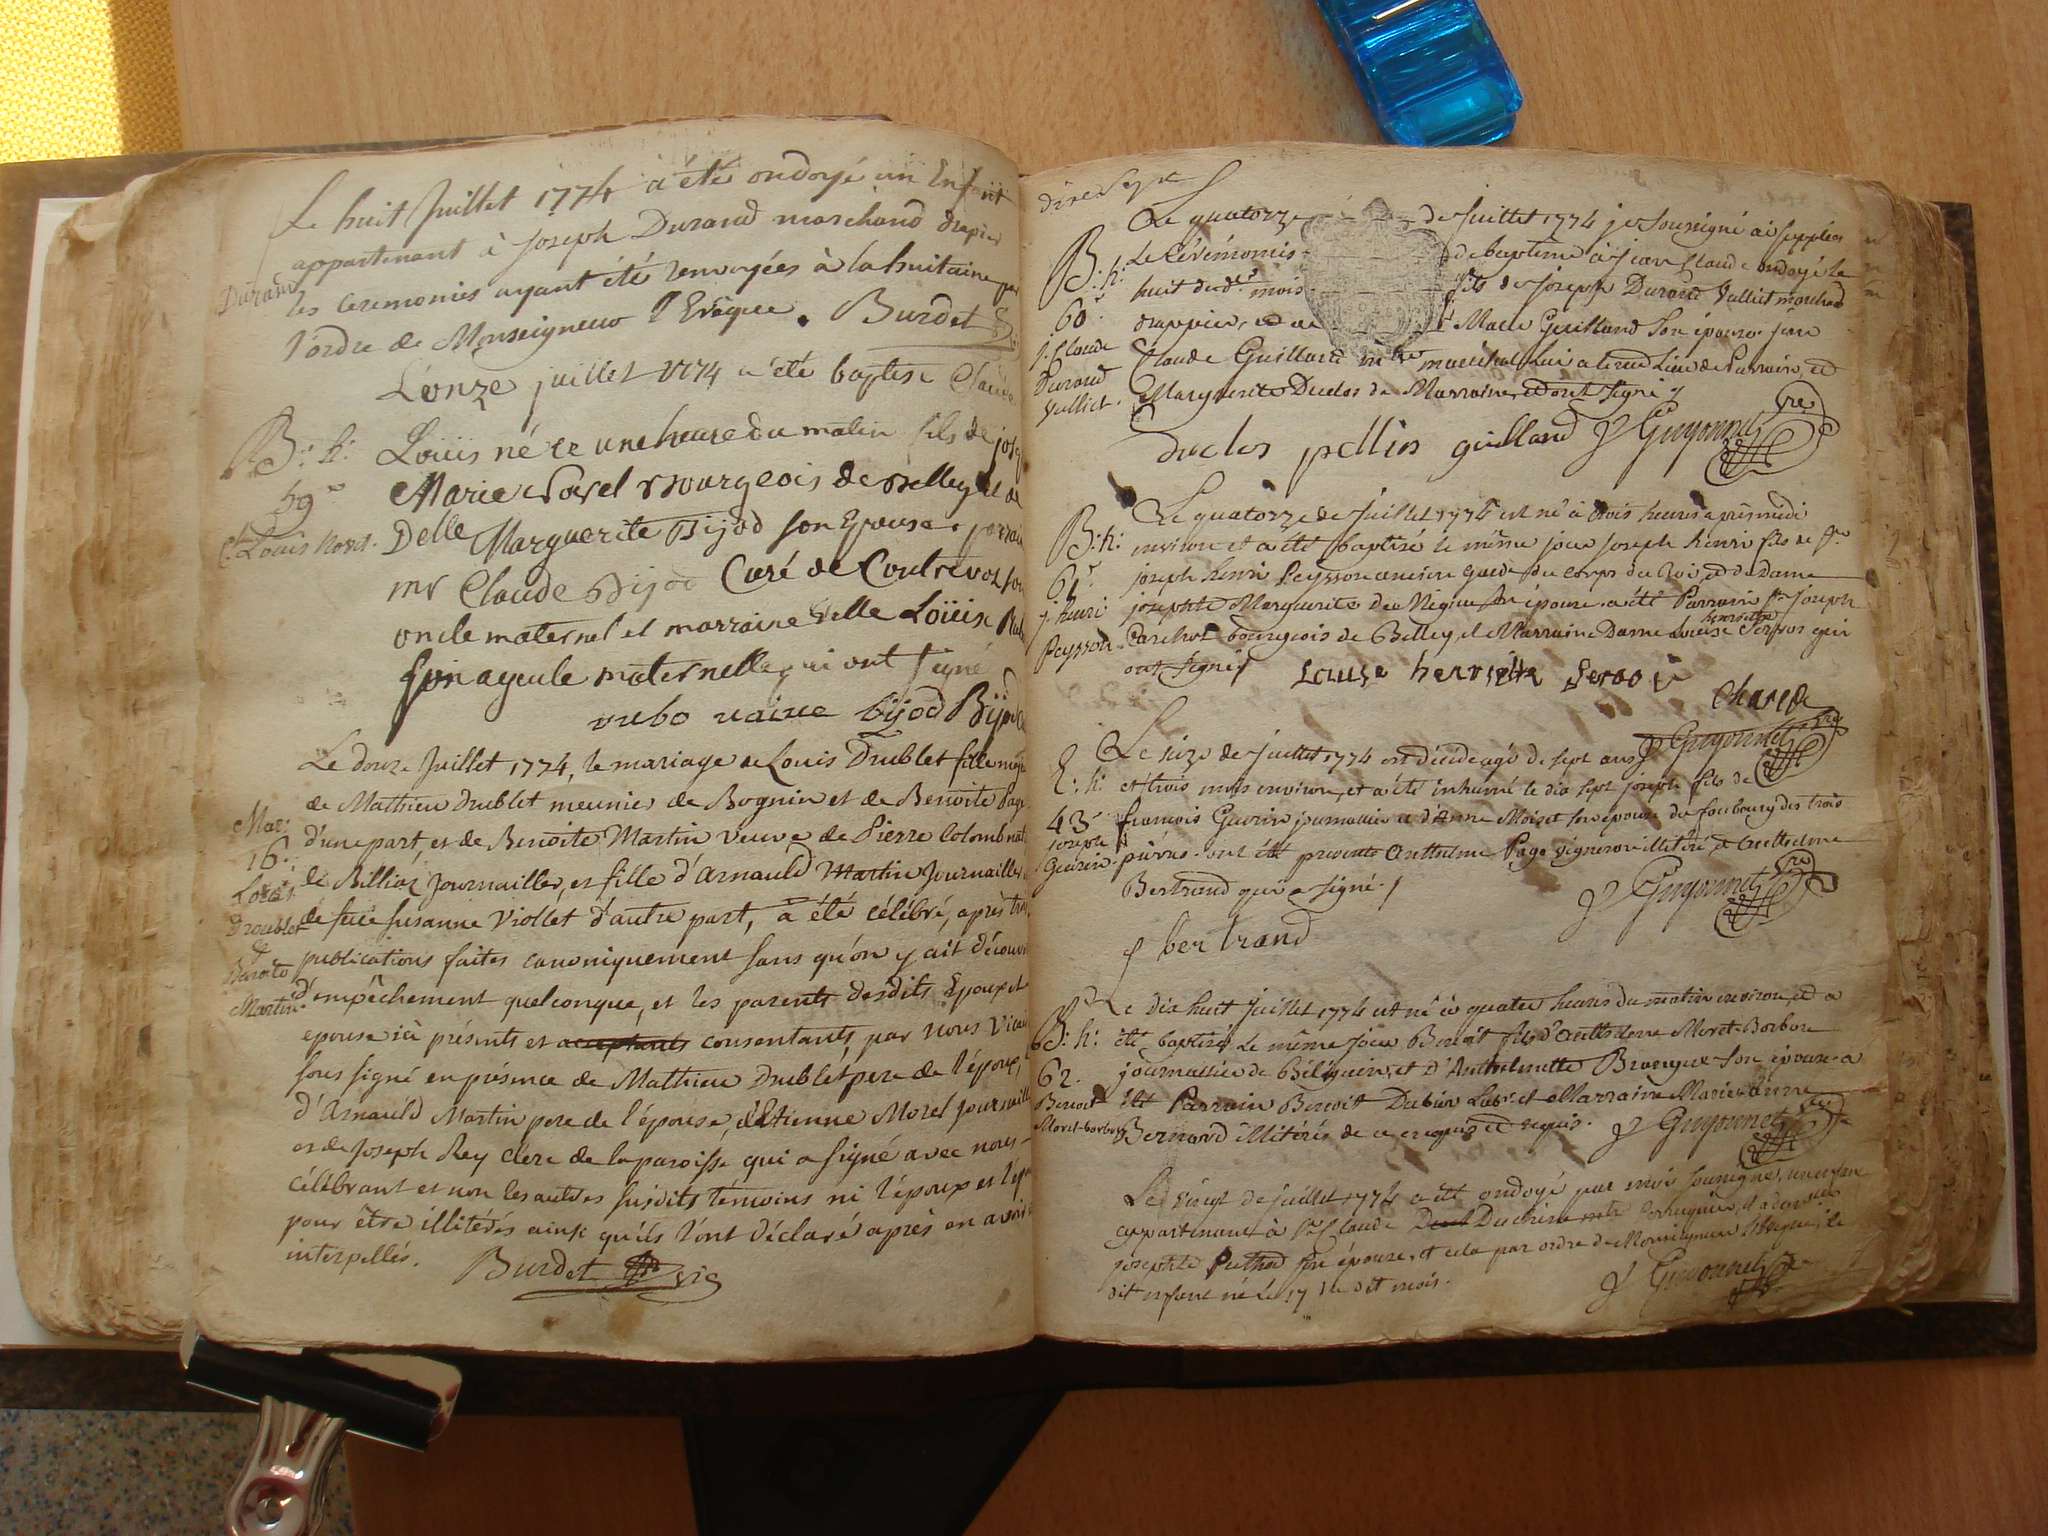 Le huit Juillet 1774 a été ondoyé un Enfant
appartenant à Joseph Durand marchand drapier
Durand
les ceremonies ayant été renvoyées à la huitaine par
l'ordre de Monseigneur l'Evêque. Burdet
L'onze juillet 1774 a été baptisé Claude
B: h:
59e
C. Louis
Loüis né a une heure du matin fils de
Marie bourgeois de Belley et de
Delle Marguerite Bijod son Epouse. parrain
mr Claude Bijod Curé de Contrevoz son
oncle maternel et marraine delle Loüise
son ayeule maternelle qui ont signé
bijod Bijod
Le douze Juillet 1774, le mariage de Louis Drublet fils
de Mathieu Drublet meunier de Bognin et de Benoite
Mar:
16.
Louis
Droublet
&
Benoite
Martin
d'une part, et de Benoite Martin veuve de Pierre Colomb
de Billiaz Journaillier, et fille d'Arnauld Martin Journaillier
de feüe susanne Viollet d'autre part, a été célébré, après trois
publications faites canoniquement sans qu'on y ait découvert
d'empêchement quelconque, et les parents desdits Epoux et
epouse ici présents et acceptants consentants, par nous Vicaire
sous signé en présence de Mathieu Drublet pere de l'époux,
d'Arnauld Martin pere de l'épouse, d'Etienne Morel Journaillier
et de Joseph Rey clerc de la paroisse qui a signé avec nous
célébrant et non les autres susdits témoins ni l'époux et l'épouse
pour être illitérés ainsi qu'ils l'ont déclaré après en avoir
interpellés. Burdet vic
dixe Sept
Le quatorze de Juillet 1774 je soussigné ai supplée
B: h:
60e
j. Claude
Durand
Vulliet.
les Cérémonies de baptême à jean Claude ondoyé le
huit dudt mois fils de joseph Durand Vulliet marchand
drappier, et de Marie Guilland son épouse. jean
Claude Guilland mtre maréchal lui a tenu lieu de Parrain, et
Marguerite Duclos de Marraine, et ont signé
duclos pellin guilland J Guyonnet vre
Le quatorze de juillet 1774 est né à trois heures après midi
B: h:
61e
j. henri
Peysson
environ et a été baptisé le même jour joseph henri fils de Sr
joseph henri Peysson ancien garde du corps du Roi, et de dame
josephte Marguerite son épouse. a été Parrain Sr Joseph
bourgeois de Belley, et Marraine Dame Louise henriette qui
ont signé Louise henriette
J Guyonnet vre
Le seize de juillet 1774 est décédé agé de sept ans
E: h:
43e
joseph
Guerin.
et trois mois environ, et a été inhumé le dix sept joseph fils de
francois Guerin journaiier et d'Anne Moiret son épouse du faubourg des trois
pierres. ont été presents Anthelme Page vigneron illitéré et Anthelme
Bertrand qui a signé.
bertrand J Guyonnet vre
Le dix huit juillet 1774 est né à quatre heures du matin environ, et a
B: h:
62.
Benoit
Moret-borbon
été baptisé le même jour Benoit fils d'Anthelme Moret-Borbon
journaiier de et d'Anthelmette son épouse. a
été Parrain Benoit Dubien Labr. et Marraine Marie Anne
Bernard illitérés de ce enquis et requis. J Guyonnet vre
Le vingt de juillet 1774 a été ondoyé par moi soussigné, un enfant
appartenant à Sr Claude Duchêne mtre perruquier, et a
josephte son épouse, et cela par ordre de Monseigneur l'Evêque, le
dit enfant né le 17 du dit mois. J Guyonnet